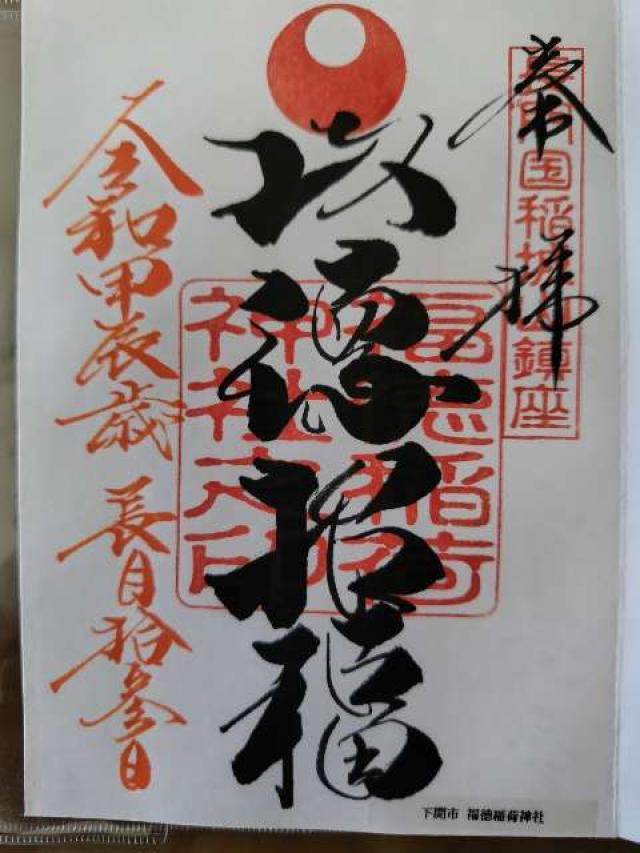 奉拝
国稲城山鎮座
以徳招福
福徳稲荷
神社之印
令和甲辰歳 長月拾参日
下関市 福徳稲荷神社